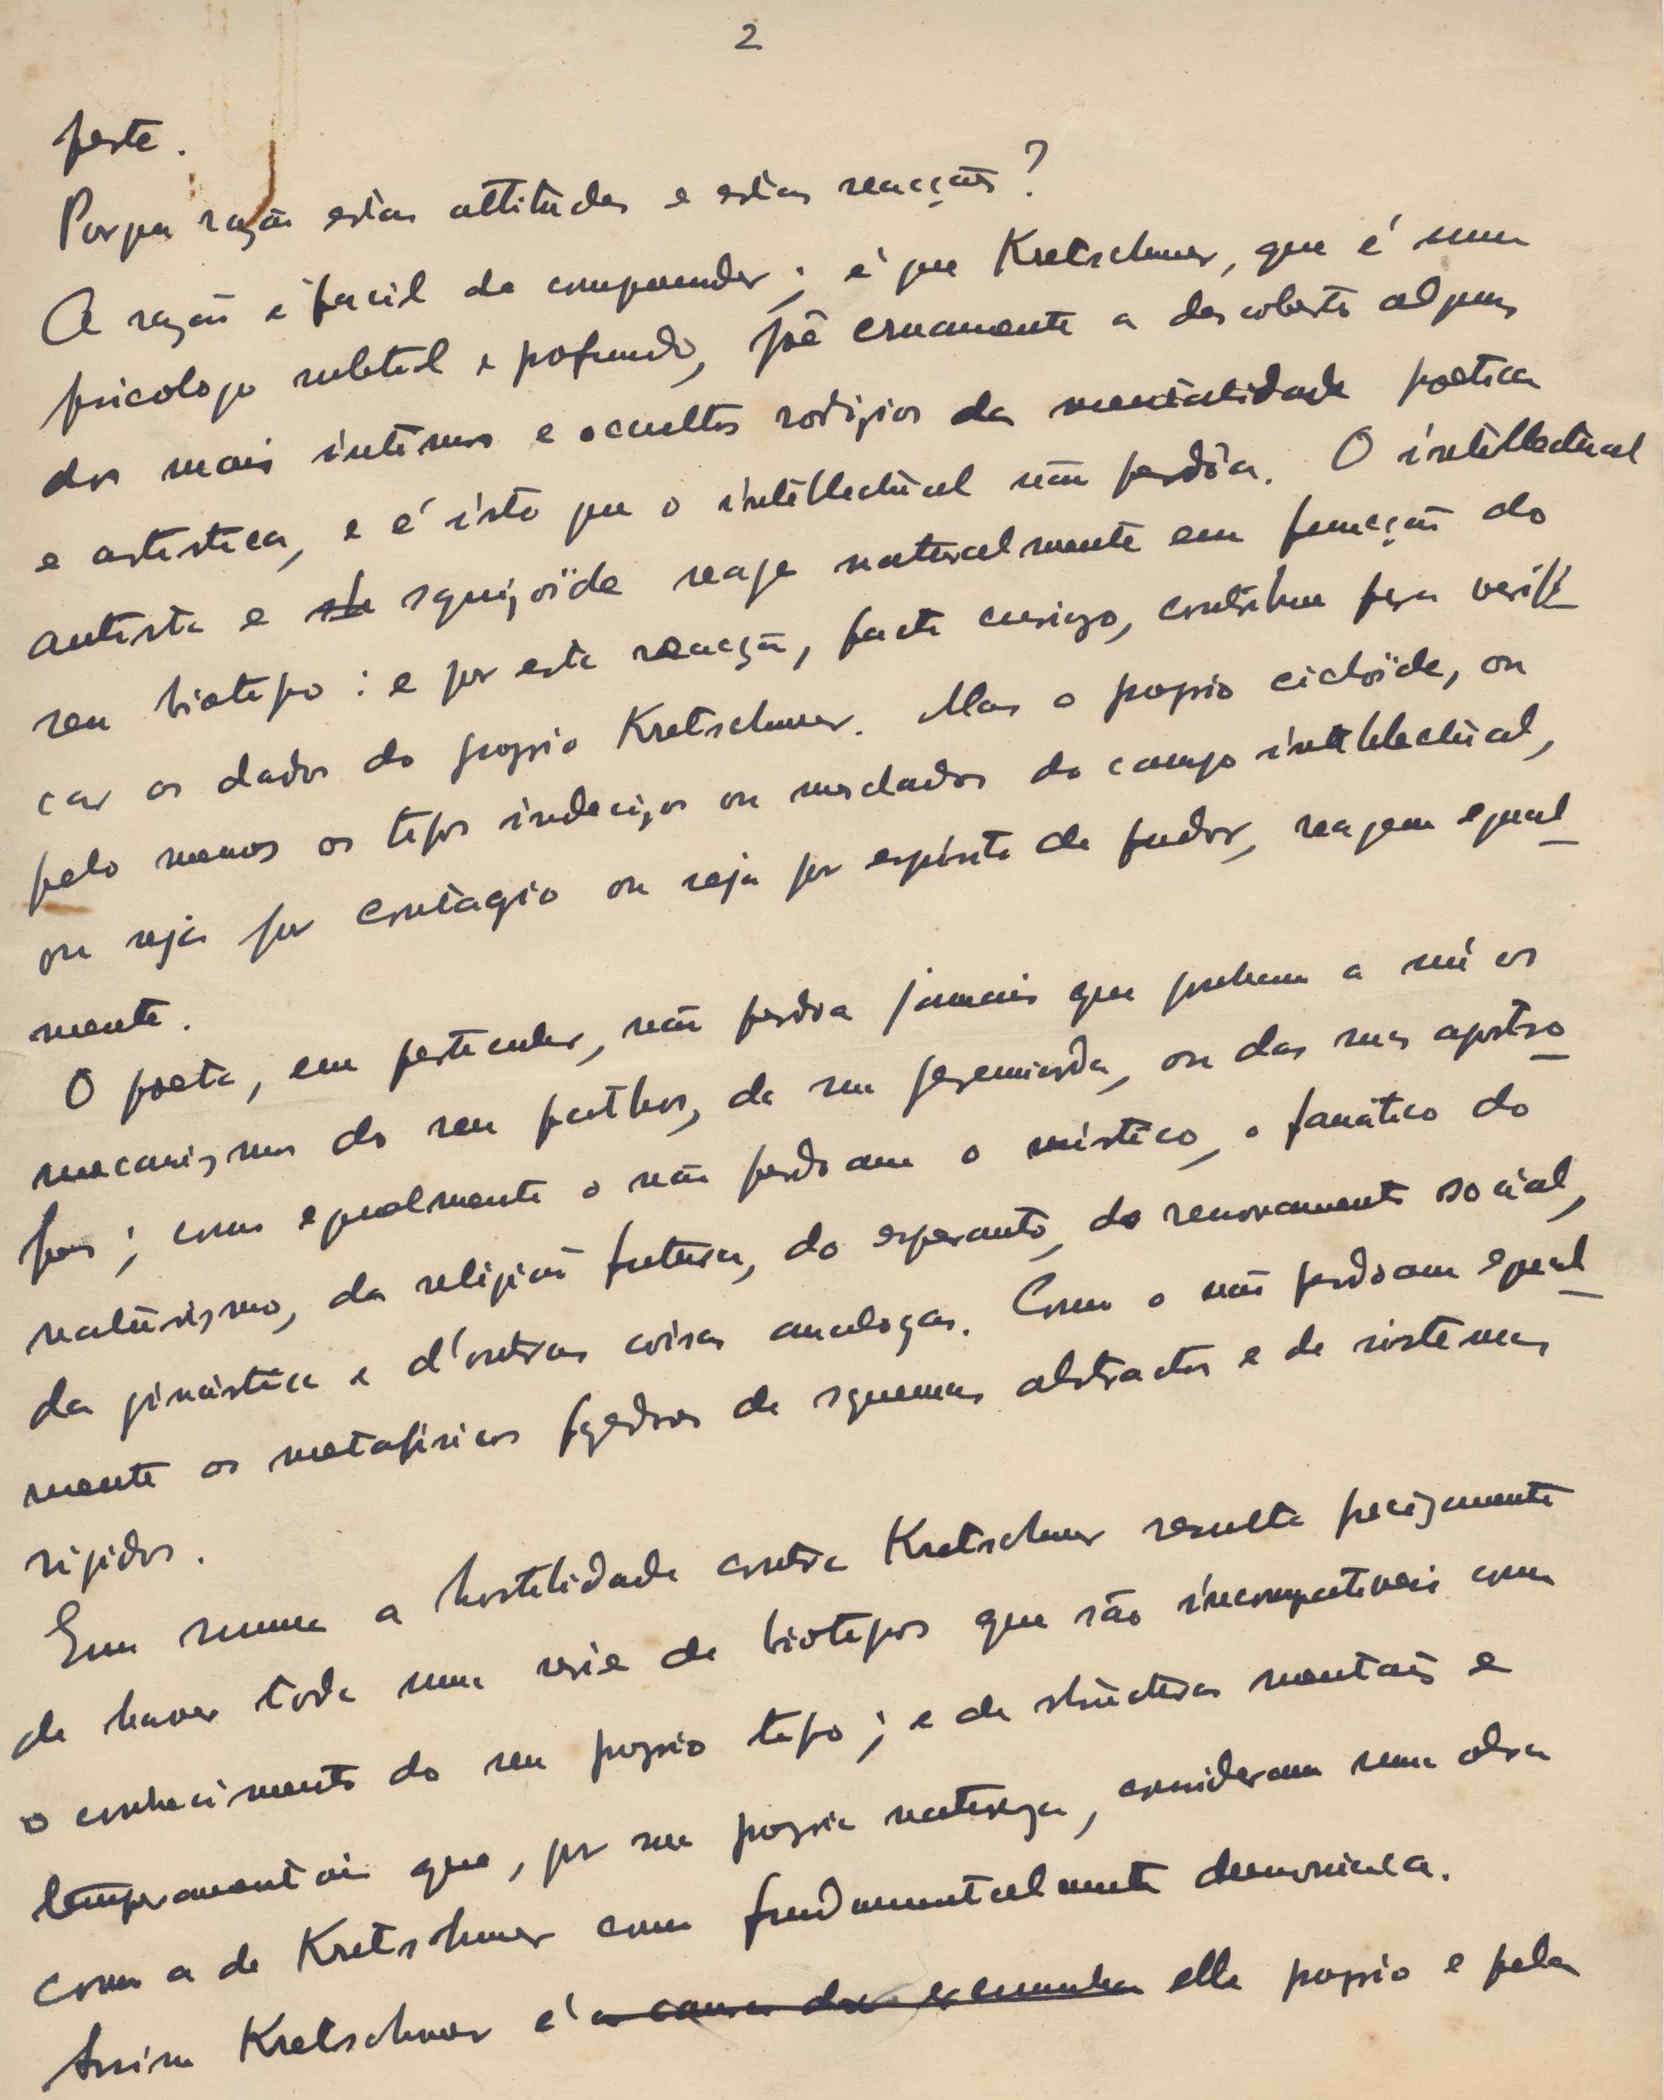 2
peste.
Porque razão estas attitudes e estas reacções?
A razão é facil de comprender; é que Kretschmer, que é um
psicologo subtil e profundo, põe cruamente a descoberto alguns
dos mais intimos e occultos rodizios da mentalidade poetica
e artistica, e é isto que o intellectual não perdôa. O intellectual
autista e squizoïde reage naturalmente em funcção do
seu biotipo: e por esta reacção, facto curiozo, contribue pera verifi-
car os dados do proprio Kretschmer. Mas o proprio cicloïde, ou
pelo menos os tipos indecizos ou mesclados do campo intellectual,
ou seja por contagio ou seja por espirito de pudor, reagem egual-
mente.
O poeta, em perticular, não perdoa jamais que ponham a nú os
mecanizmos do seu pathos, da sua jeremiada, ou das suas apostro-
fes; como egualmente o não perdoam o mistico, o fanático do
naturizmo, da religião futura, do esperanto, do renovamento social,
da ginástica e d'outras coisas analogas. Como o não perdoam egual-
mente os metafisicos forjadores de squemas abstractos e de sistemas
rigidos.
Em summa a hostilidade contra Kretschmer resulta precizamente
de haver toda uma serie de biotipos que são incompativeis com
o conhecimento do seu proprio tipo; e de structuras mentais e
temperamentais que, por sua propria natureza, consideram uma obra
como a de Kretschmer como fundamentalmente demoniaca.
Assim Kretschmer é elle proprio e pela